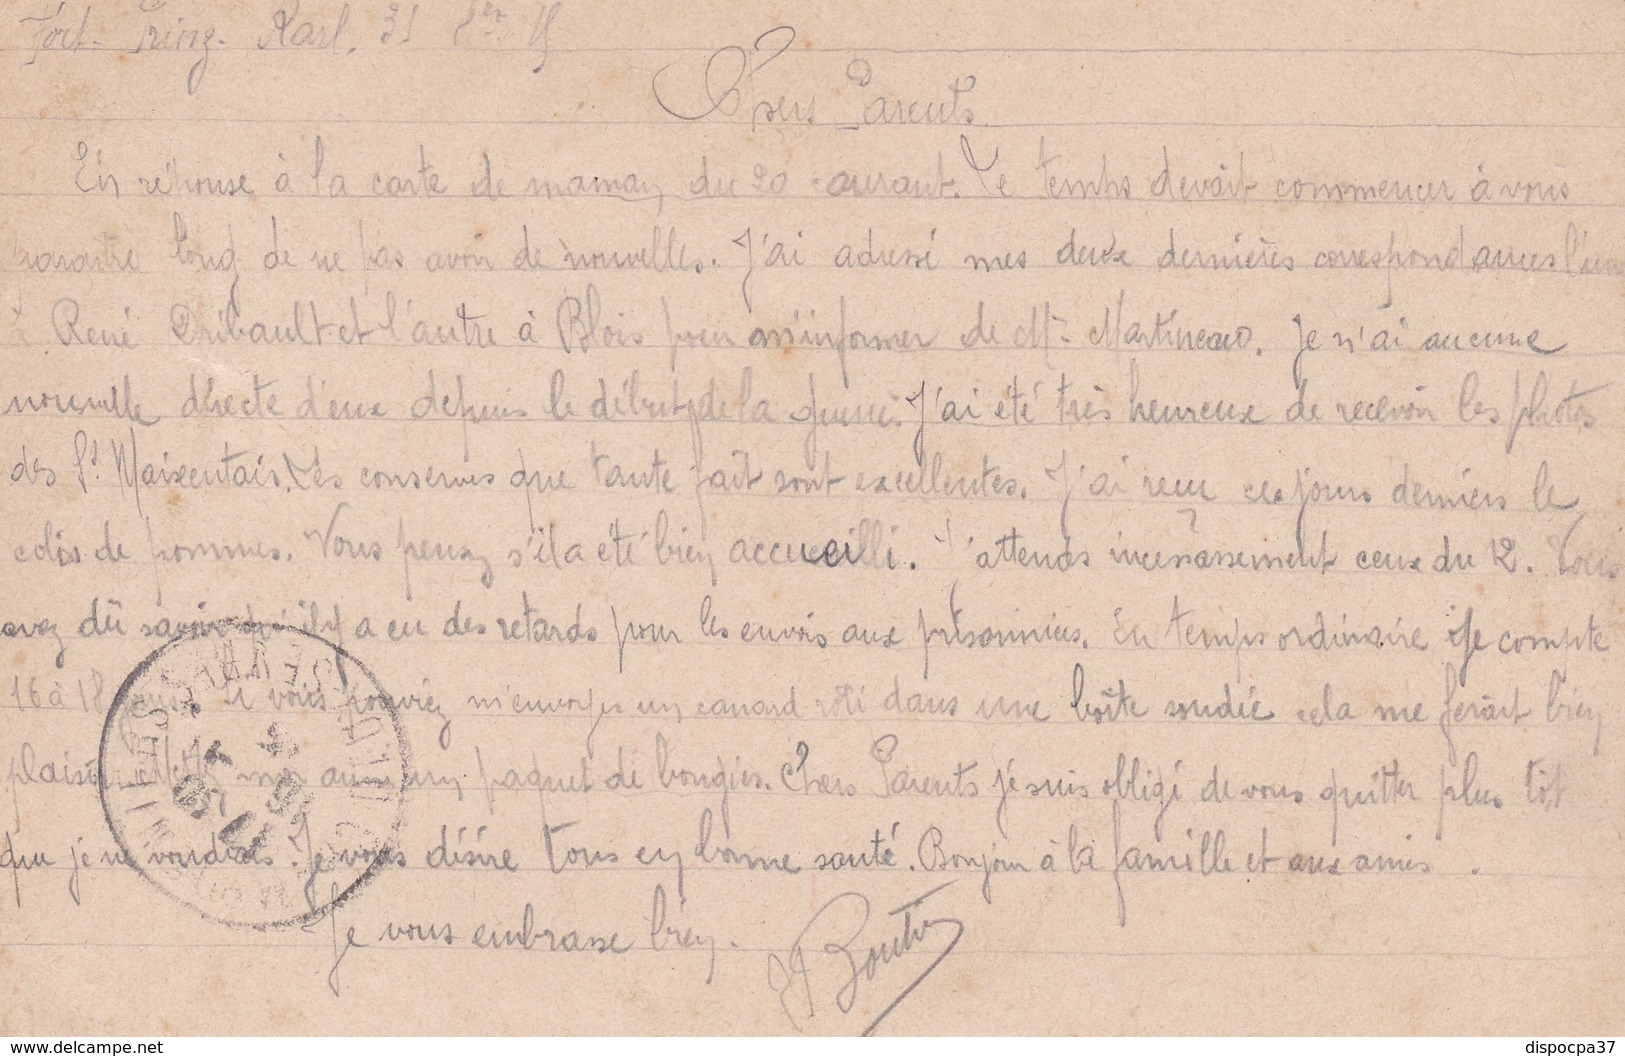 Fort- Prinz- Karl. 31 15
Chers Parents.
En réponse à la carte de maman du 20 courant. Le temps devait commencer à vous
paraitre long de ne pas avoir de nouvelles. J'ai adressé mes deux dernières correspondances l'une
à René Dribault et l'autre à Blois pour m'informer de Mr Martineau. Je n'ai aucune
nouvelle directe d'eux depuis le début de la guerre. J'ai été très heureux de recevoir les photos
des St Maixentais. Les conserves que tante fait sont excellentes. J'ai reçu ces jours derniers le
colis de pommes. Vous pensez s'il a été bien accueilli. J'attends incessassement ceux du 12. Vous
avez dû savoir qu'il y a eu des retards pour les envois aux prisonniers. En temps ordinaire je compte
16 à 18 jours. Si vous pouviez m'envoyer un canard rôti dans une boîte soudée cela me ferait bien
plaisir. moi aussi un paquet de bougies. Chers Parents je suis obligé de vous quitter plus tôt
que je ne voudrais. Je vous désire tous en bonne santé. Bonjour à la famille et aux amis.
Je vous embrasse bien.
www.delcampe.net
dispocpa37